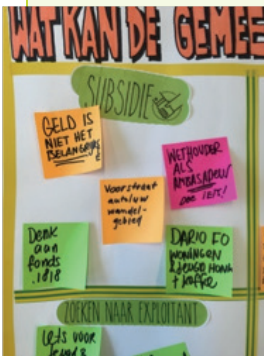 WAT KAN DE GEMEE
SUBSIDIE
GELD IS
NIET HET
BELANGRIJKSTE
WETHOUDER
ALS
AMBASADEUR
DOE IETS!
Voorstraat
autoluw
wandel-
gebied
Denk
aan
fonds
.1818
DARIO FO
WONINGEN
& JEUGD HONK
+ koffie
ZOEKEN NAAR EXPLOITANT
Iets voor